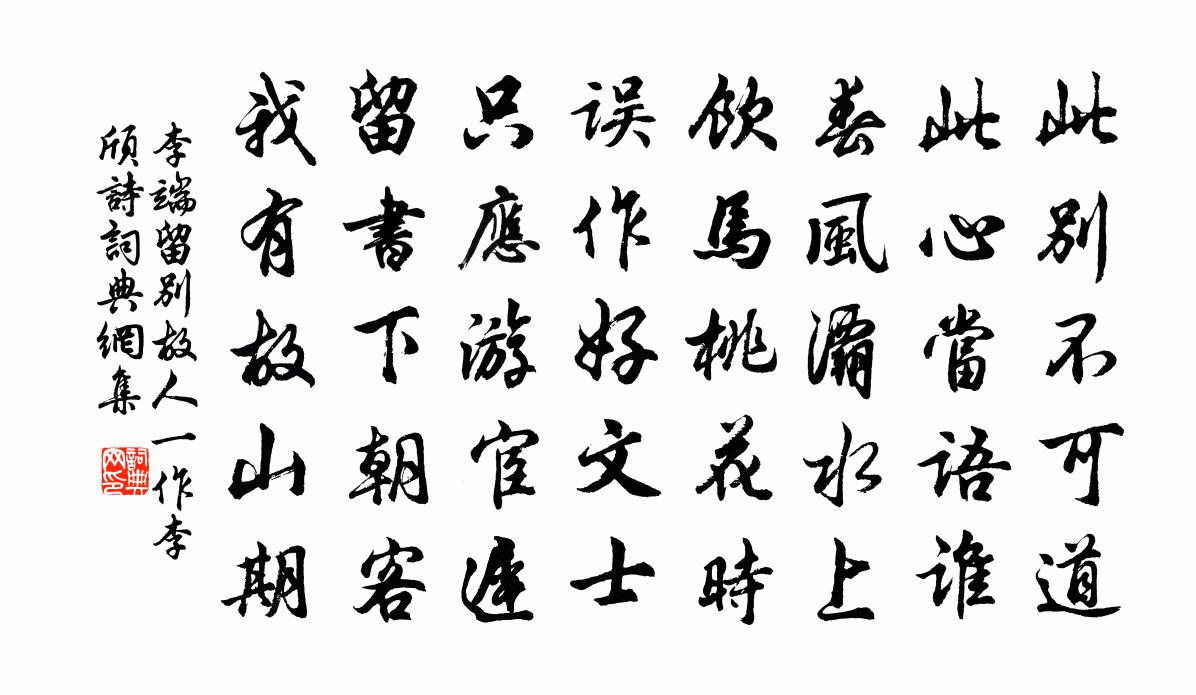 此別不可道
此心當語誰
春風灞水上
飲馬桃花時
误作好文士
只應游宦遲
留書下朝客
我有故山期
李端留別故人一作李
頎詩詞典網集
詞典
网印